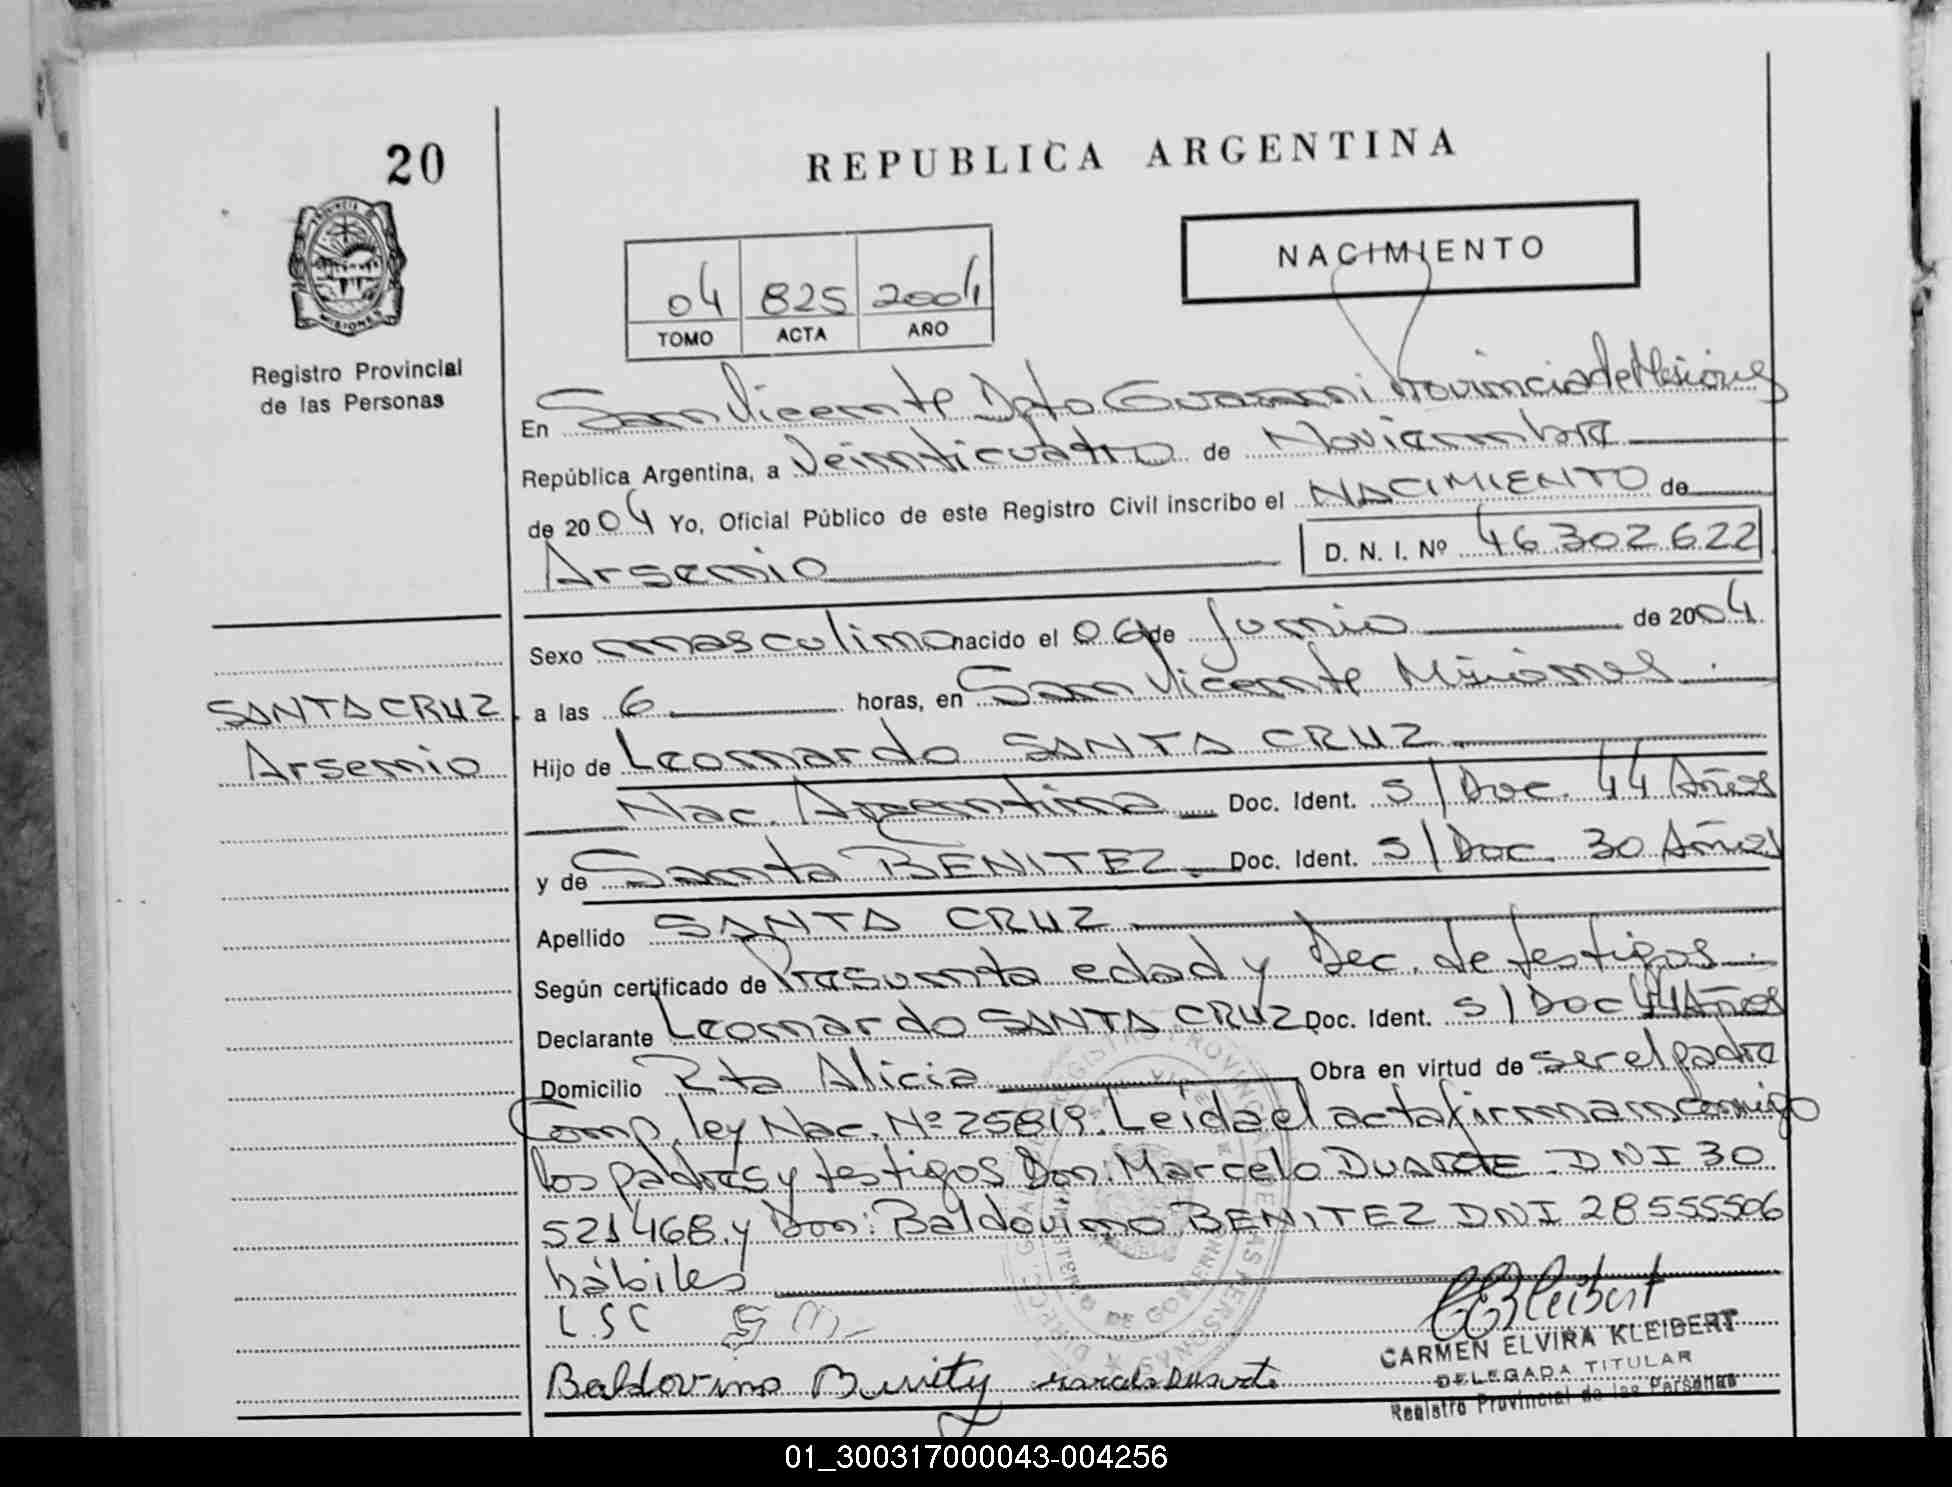 20
REPUBLICA ARGENTINA
PROVINCIA DE
MISIONES
Registro Provincial
de las Personas
04 825 2004
TOMO ACTA AÑO
NACIMIENTO
En San Vicente Dpto Guarani Provincia de Misiones
República Argentina, a Veinticuatro de Noviembre
de 2004 Yo, Oficial Público de este Registro Civil inscribo el NACIMIENTO de
Arsenio D. N. I. Nº 46302622
Sexo masculino nacido el 06 de Junio de 2004
a las 6 horas, en San Vicente Misiones
SANTA CRUZ
Arsenio
Hijo de Leonardo SANTA CRUZ
Nac. Argentina Doc. Ident. S/Doc. 44 Años
y de Santa BENITEZ. Doc. Ident. S/Doc. 30 Años
Apellido SANTA CRUZ
Según certificado de Presunta edad y Dec. de testigos.
Declarante Leonardo SANTA CRUZ Doc. Ident. S/Doc 44 Años
Domicilio Pto Alicia Obra en virtud de ser el padre
Comp. ley Nac. Nº 25819. Leida el acta firman conmigo
los padres y testigos Don: Marcelo DUARTE DNI 30
521468 y Don: Baldovino BENITEZ DNI 28555506
hábiles
LSC
Baldovino Marcelo Duarte
CARMEN ELVIRA KLEIBERT
DELEGADA TITULAR
Registro Provincial de las Personas
01_300317000043-004256